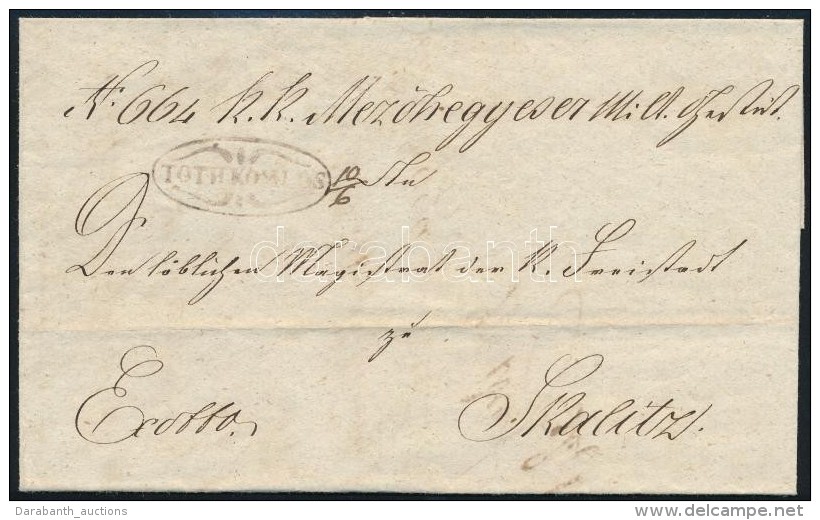 N: 664 K. K. Mezőhegyeser Milt. Gestüt.
TOTH KOMLOS
10/6 An
Den löblichen Magistrat der K. Freistadt
zu
Exoffo.
Skalitz.
darabanth
Darabanth_auctions
www.delcampe.net